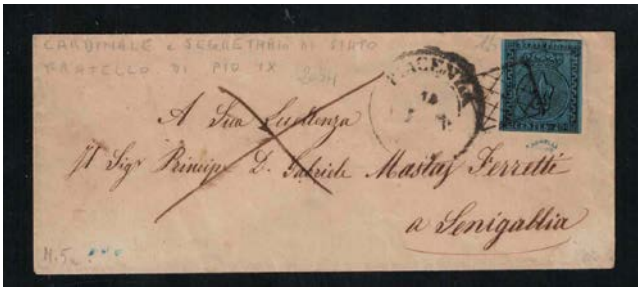 CARDINALE e SEGRETARIO DI STATO
FRATELLO DI PIO IX
PIACENZA
A Sua Eccellenza
Il Sigr Principe D. Gabriele Mastaj Ferretti
a Senigallia